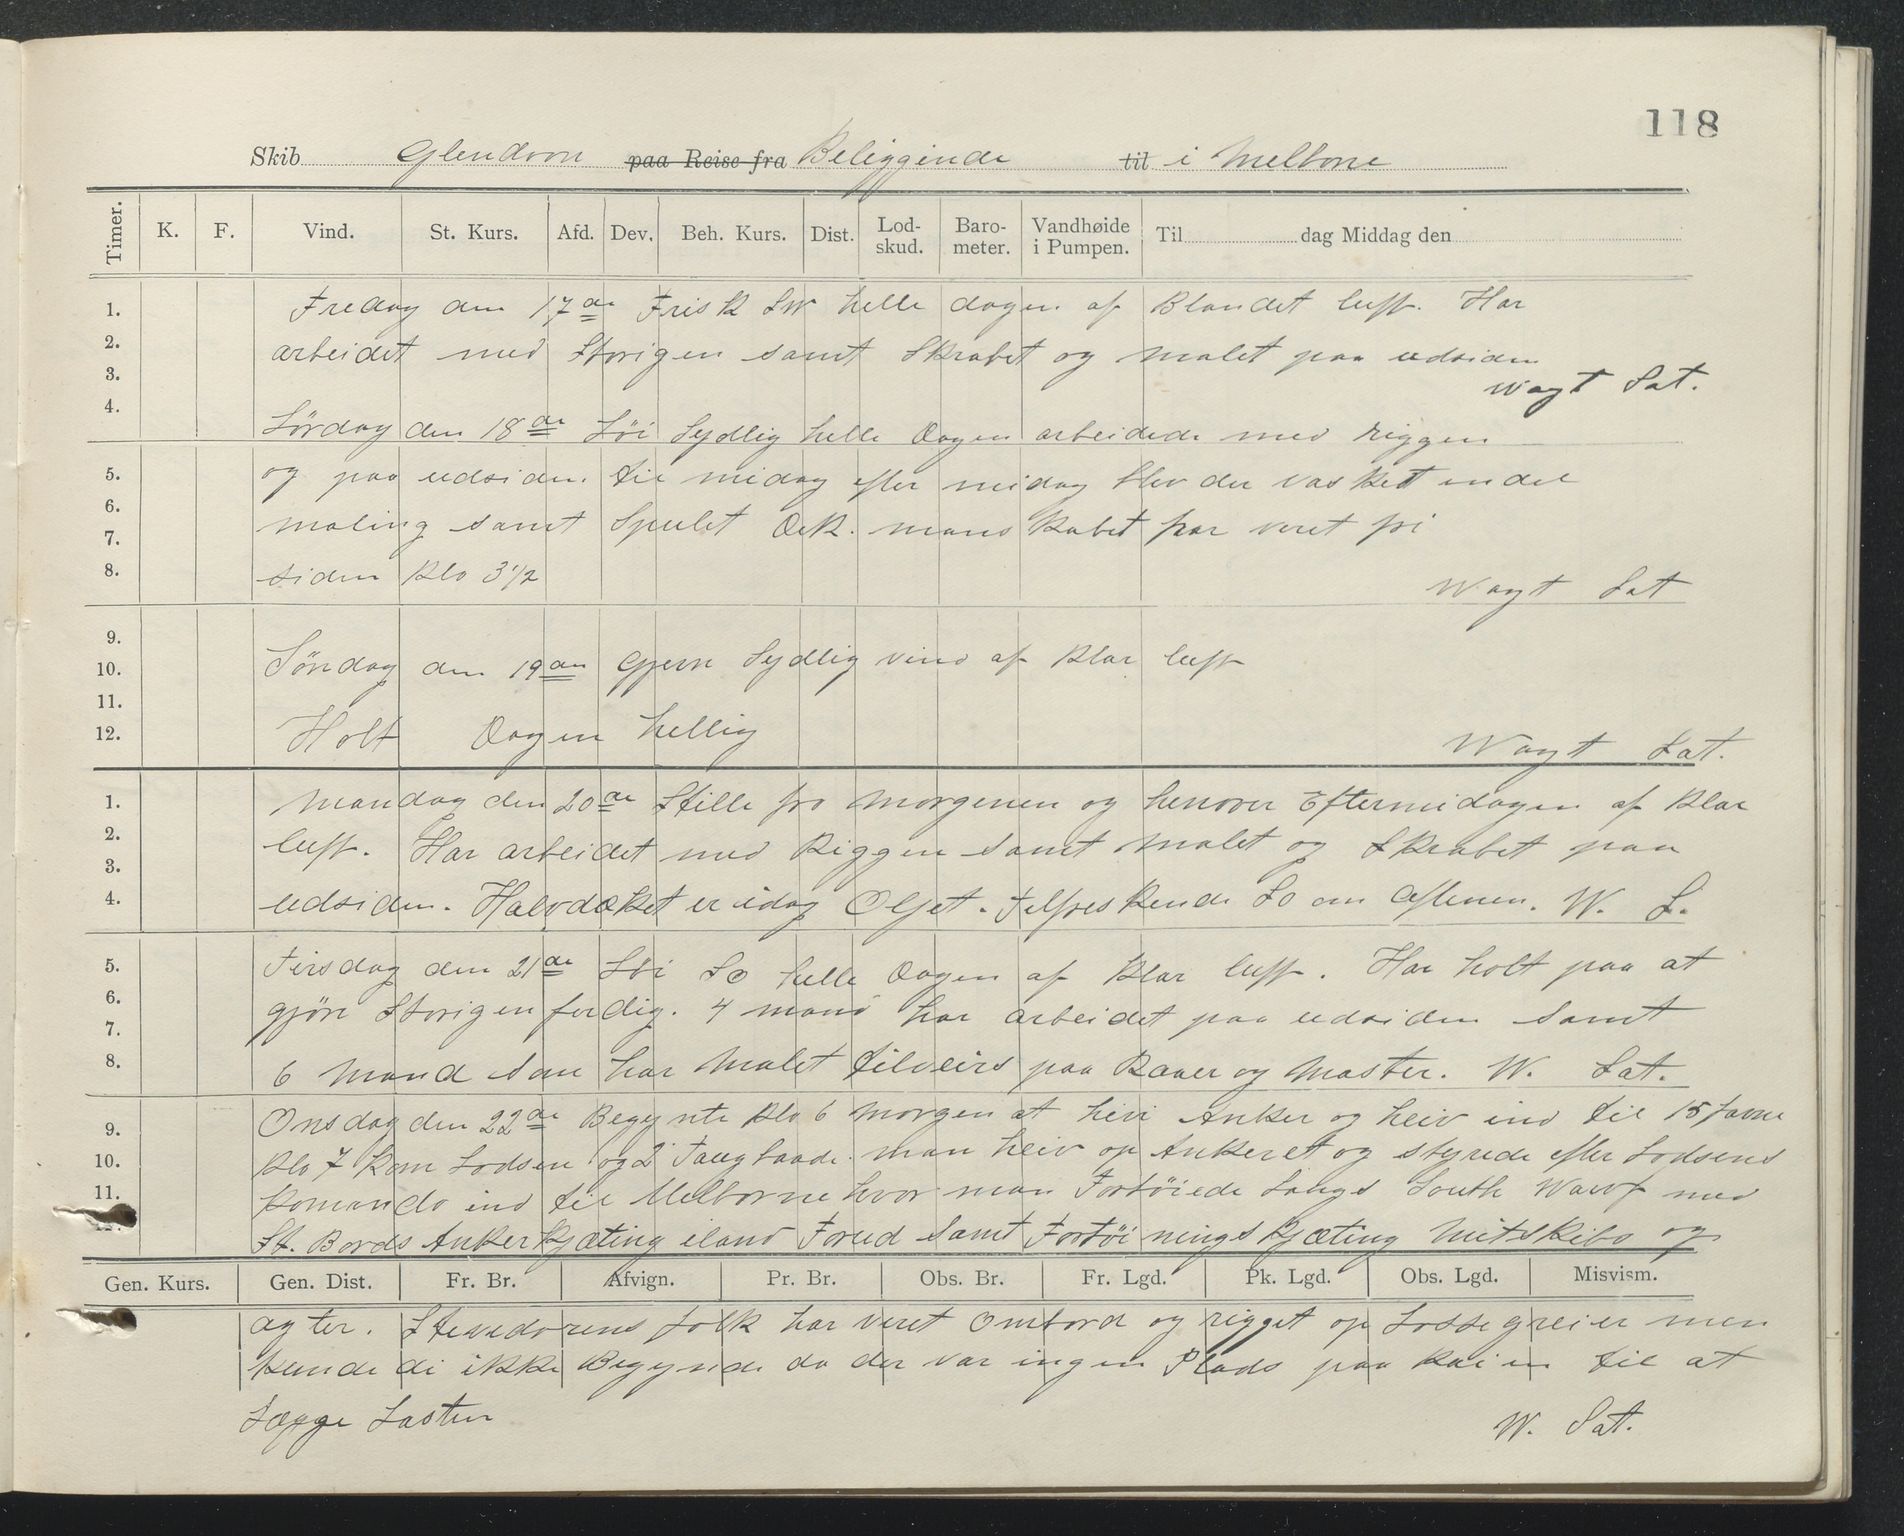 118
Skib Glendoon paa Reise fra Beliggende til i Melborne
Timer. K. F. Vind. St. Kurs. Afd. Dev. Beh. Kurs. Dist. Lod-skud. Baro-meter. Vandhøide i Pumpen. Til dag Middag den
1. Fredag den 17de Frisk SW helle dagen af Blandet luft. Har
2. arbeidet med Storigen samt Skrabet og malet paa udsiden
3. Wagt Sat.
4. Lørdag den 18de Løi Sydlig helle Dagen arbeidede med riggen
5. og paa udsiden. til midag efter midag blev der vasket endel
6.
7. maling samt Spulet Dek. manskabet har veret fri
8. siden Klo 3 1/2 Wagt Sat
9.
10. Søndag den 19de Gjevn Sydlig vind af Klar luft
11.
12. Holt Dagen hellig Wagt Sat.
1. Mandag den 20de Stille fra morgenen og henover Eftermidagen af Klar
2. luft. Har arbeidet med Riggen samt malet og Skrabet paa
3.
4. udsiden. Halvdæket er idag Oljet. Tilfreskende SO om Aftenen. W. S.
5. Tirsdag den 21de Løi SO helle Dagen af Klar luft. Har holt paa at
6.
7. gjøre Storigen ferdig. 4 mand har arbeidet paa udsiden samt
8. 6 Mand som har Malet tilveirs paa Raaer og Master. W. Sat.
9. Onsdag den 22de Begynte Klo 6 Morgen at hive Anker og heiv ind til 15 favne
10. Klo 7 Kom Lodsen og 2 Taugbaade. man heiv op Ankeret og styrede efter Lodsens
11. Komando ind til Melborne hvor man Fortøiede Langs South Warf med
St. Bords Ankerkjæting iland Forud Samt Fortøiningskjæting Mitskibs og
Gen. Kurs. Gen. Dist. Fr. Br. Afvign. Pr. Br. Obs. Br. Fr. Lgd. Pk. Lgd. Obs. Lgd. Misvism.
agter. Stevedorens folk har veret Ombord og rigget op Lossegreier men
kunde di ikke Begynde da der var ingen Plads paa Kaien til at
Lægge Lasten W. Sat.